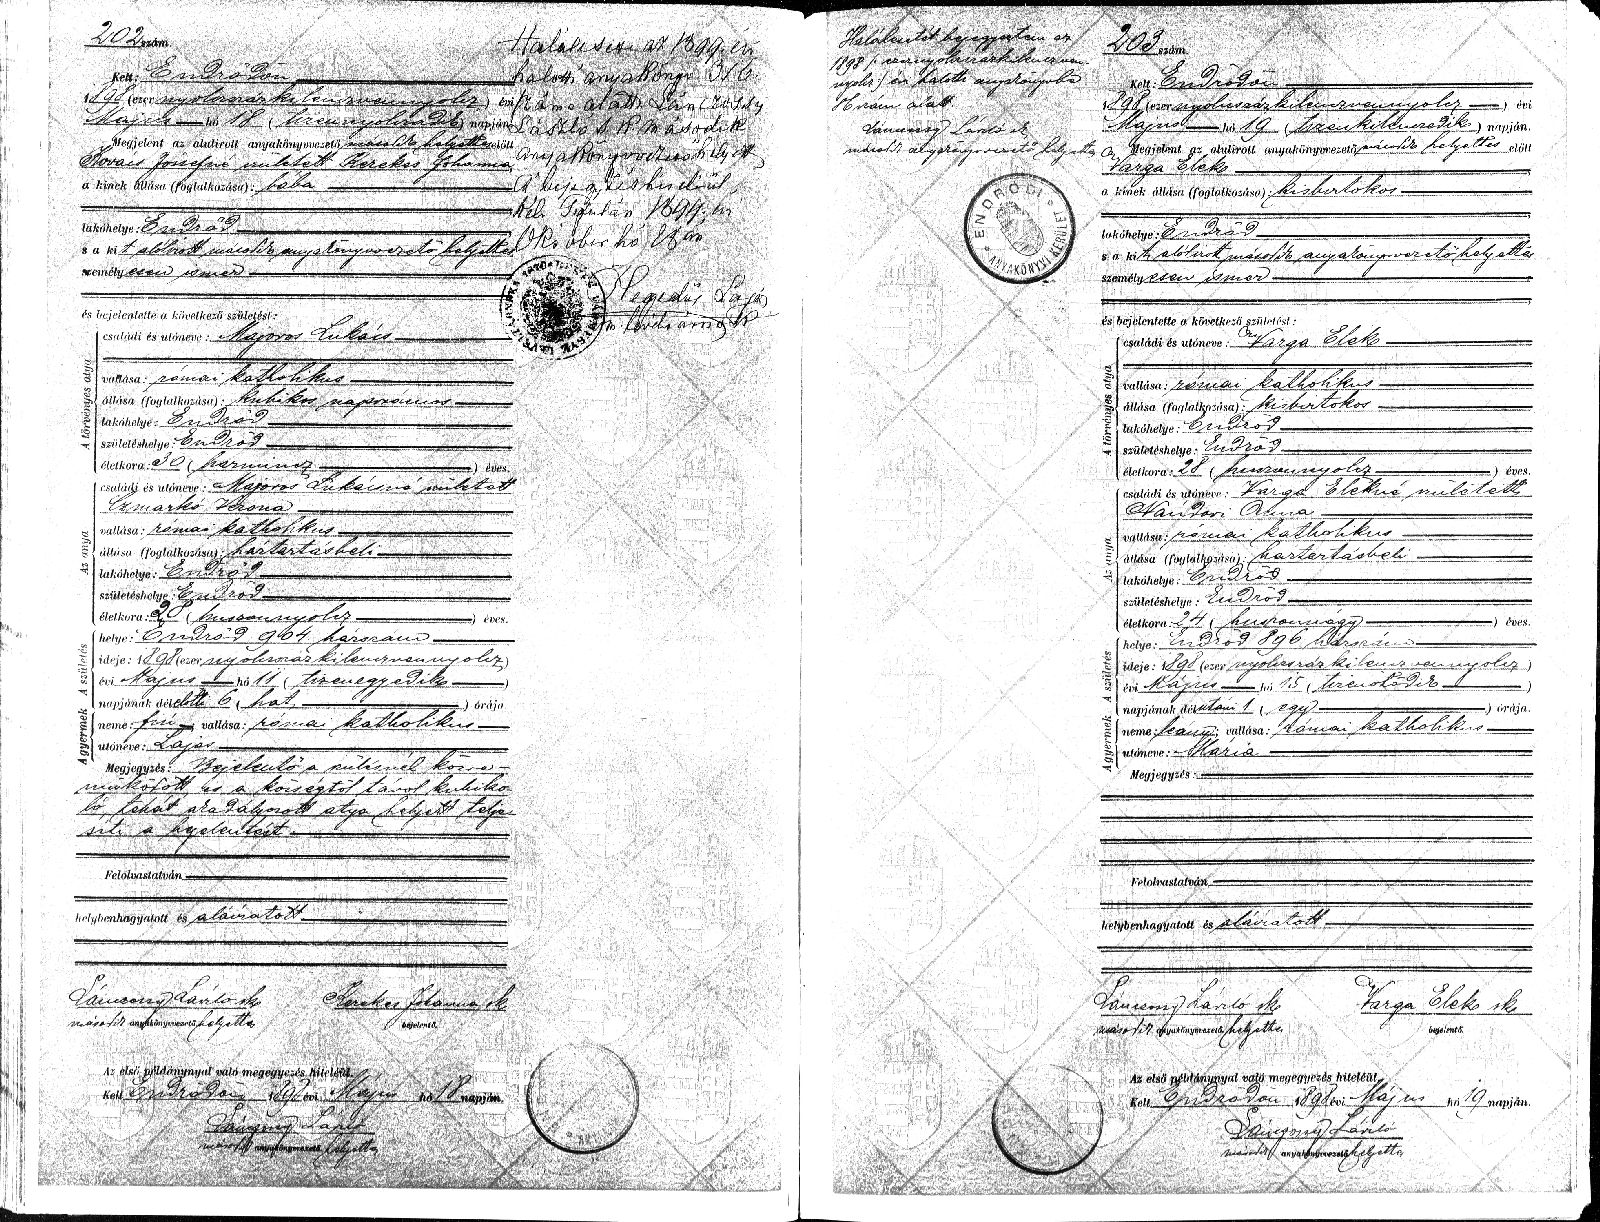 202 szám.
Kelt: Endrődön
1898 (ezer nyolcszázkilenczvennyolcz) évi
Május hó 18 (tizennyolczadik) napján.
Megjelent az alulirott anyakönyvvezető másodh helyettes előtt
Kovács Józsefné született Kerekes Johanna
a kinek állása (foglalkozása): bába
lakóhelye: Endrőd
s a kit alólirott másodh anyakönyvvezető helyettes
személyesen ismer
és bejelentette a következő születést:
A törvényes atya
családi és utóneve: Majoros Lukács
vallása: római katholikus
állása (foglalkozása): kubikos napszamos
lakóhelye: Endrőd
születéshelye: Endrőd
életkora: 30 (harmincz) éves.
Az anya
családi és utóneve: Majoros Lukácsné született
Czmarkó Verona
vallása: római katholikus
állása (foglalkozása): háztartásbeli
lakóhelye: Endrőd
születéshelye: Endrőd
életkora: 28 (huszonnyolcz) éves.
A születés
helye: Endrőd 904 házszám
ideje: 1898 (ezer nyolcszázkilenczvennyolcz)
évi Május hó 11 (tizenegyedik)
napjának délelőtti 6 (hat) órája
A gyermek
neme: fiu vallása: római katholikus
utóneve: Lajos
Megjegyzés: Bejelentő a szülésnél közre-
működött, és a községtől távol kubiko-
ló, tehát akadályozott atya helyett telje-
síti a bejelentést.
Felolvastatván,
helybenhagyatott és aláiratott
Lánczony László sk Kerekes Johanna sk
másodh anyakönyvvezető helyettes bejelentő.
Az első példánynyal való megegyezés hiteléül.
Kelt Endrődön 1898 évi Május hó 18 napján.
Lánczony László
másodh anyakönyvvezető helyettes
Halálesete az 1899. évi
halotti anyakönyv 316
száma alatt
László s. k. második
anyakönyvvezető helyett.
A bejegyzés hiteléül,
Kelt Gyulán 1899. évi
Október hó
Hegedűs
Halálesetét bejegyeztem az
1898 (ezernyolcszázkilenczven-
nyolcz) évi halotti anyakönyvbe
szám alatt.
Lánczony László sk
másodh anyakönyvvezető helyettes
ENDRŐDI ANYAKÖNYVI KERÜLET
203 szám.
Kelt: Endrődön
1898 (ezer nyolcszázkilenczvennyolcz) évi
Május hó 19 (tizenkilenczedik) napján.
Megjelent az alulirott anyakönyvvezető másodh helyettes előtt
Varga Elek
a kinek állása (foglalkozása): kisbirtokos
lakóhelye: Endrőd
s a kit alólirott másodh anyakönyvvezető helyettes
személyesen ismer
és bejelentette a következő születést:
A törvényes atya
családi és utóneve: Varga Elek
vallása: római katholikus
állása (foglalkozása): kisbirtokos
lakóhelye: Endrőd
születéshelye: Endrőd
életkora: 28 (huszonnyolcz) éves.
Az anya
családi és utóneve: Varga Elekné született
Nándori Anna
vallása: római katholikus
állása (foglalkozása): háztartásbeli
lakóhelye: Endrőd
születéshelye: Endrőd
életkora: 24 (huszonnégy) éves.
A születés
helye: Endrőd 896 házszám
ideje: 1898 (ezer nyolcszázkilenczvennyolcz)
évi Május hó 15 (tizenötödik)
napjának délutáni 1 (egy) órája.
A gyermek
neme: leány vallása: római katholikus
utóneve: Mária
Megjegyzés:
Felolvastatván,
helybenhagyatott és aláiratott
Lánczony László sk Varga Elek sk
másodh anyakönyvvezető helyettes bejelentő.
Az első példánynyal való megegyezés hiteléül.
Kelt Endrődön 1898 évi Május hó 19 napján.
Lánczony László
másodh anyakönyvvezető helyettes